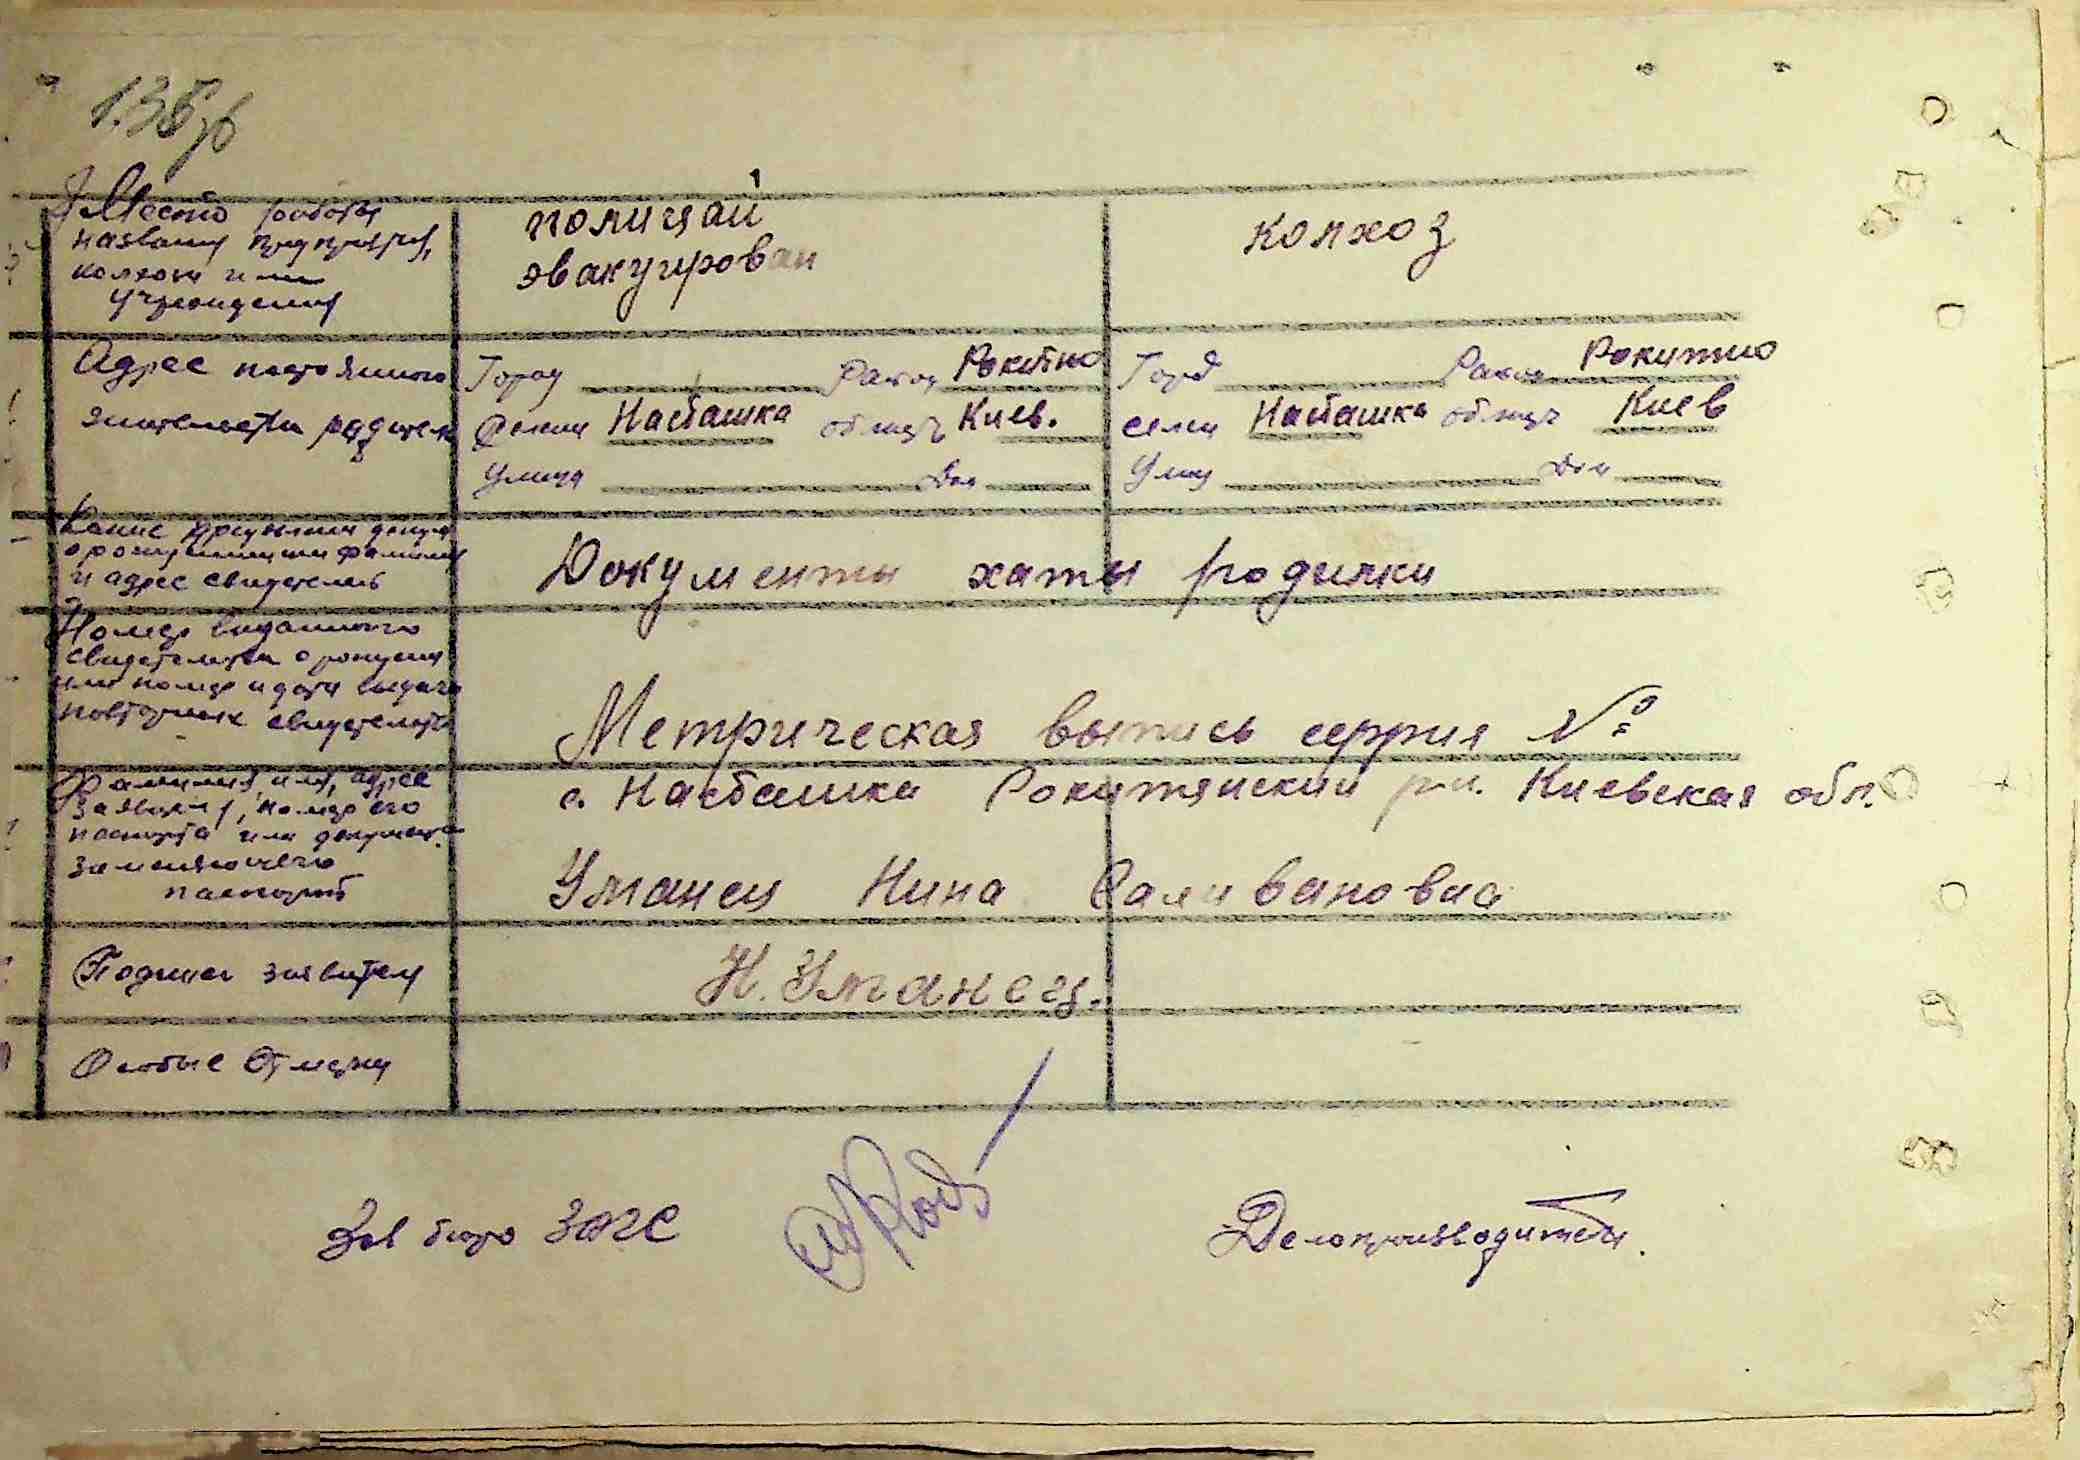 135зв
Место работы
названия предприятия,
колхоза или
учреждения
полицай
эвакуирован
колхоз
Адрес постоянного
жительства родителей
Город Район Рокитно
Селении Насташка область Киев.
Улица Дом
Город Район Рокитно
селен Насташка область Киев
Улиц Дом
Какие предъявлен
и адрес свидетелей
Документы хаты родилки
Номер выданного
свидетельства о рождении
или номер и дата выдачи
повторных свидетельств
Метрическая выпись серрия №
Фамилия, имя, адрес
заявителя, номер его
паспорта или документа
заменяющего
паспорт
с. Насташка Рокитянский р-н. Киевская обл.
Уманец Нина Саливановна
Подписи заявител
Н. Уманец.
Особые Отметки
Зав бюро ЗАГС
Делопроизводитель.